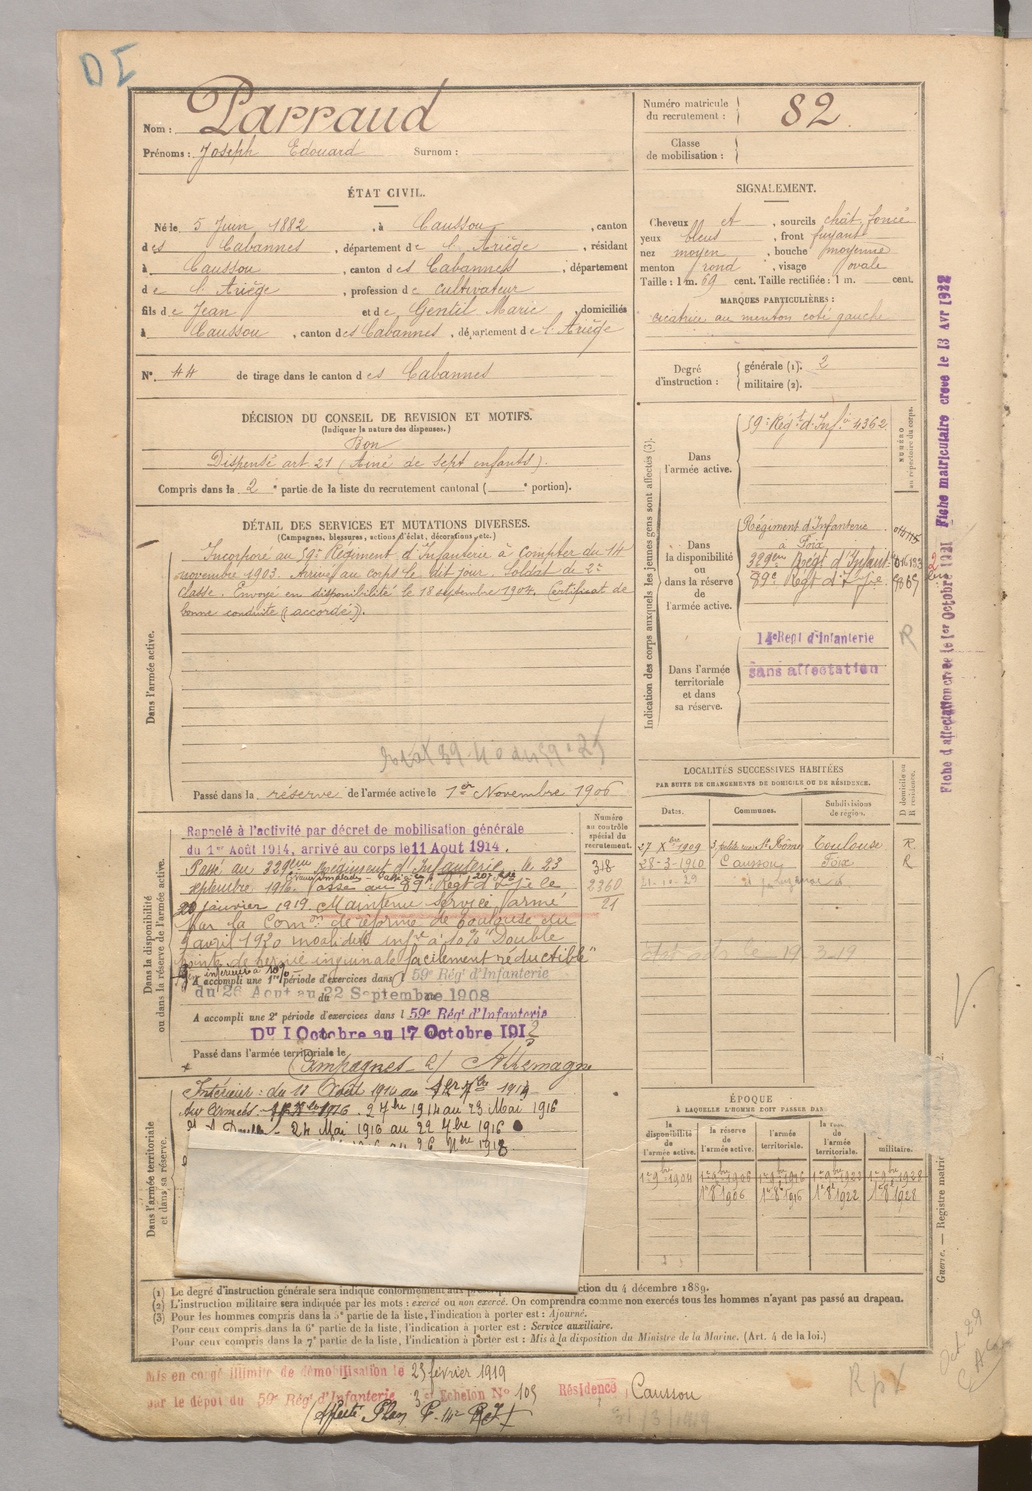 DI
Nom : Parraud
Prénoms : Joseph Edouard Surnom :
Numéro matricule du recrutement : 82
Classe de mobilisation :
ÉTAT CIVIL.
Né le 5 Juin 1882, à Caussou, canton
des Cabannes, département de l'Ariège, résidant
à Caussou, canton des Cabannes, département
de l'Ariège, profession de cultivateur
fils de Jean et de Gentil Marie, domiciliés
à Caussou, canton des Cabannes, département de l'Ariège
N° 44 de tirage dans le canton des Cabannes
SIGNALEMENT.
Cheveux et, sourcils chât. foncé
yeux bleus, front fuyant
nez moyen, bouche moyenne
menton rond, visage ovale
Taille : 1 m. 69 cent. Taille rectifiée : 1 m. cent.
MARQUES PARTICULIÈRES :
cicatrice au menton coté gauche
Degré d'instruction : générale (1). 2
militaire (2).
DÉCISION DU CONSEIL DE REVISION ET MOTIFS.
(Indiquer la nature des dispenses.)
Bon
Dispensé art 21 (Ainé de sept enfants).
Compris dans la 2e partie de la liste du recrutement cantonal ( e portion).
DÉTAIL DES SERVICES ET MUTATIONS DIVERSES.
(Campagnes, blessures, actions d'éclat, décorations, etc.)
Dans l'armée active.
Incorporé au 59e Régiment d'Infanterie à compter du 14
novembre 1903. Arrivé au corps le dit jour. Soldat de 2e
classe. Envoyé en disponibilité le 18 septembre 1904. Certificat de
bonne conduite (accordé).
Passé dans la réserve de l'armée active le 1er Novembre 1906
Indication des corps auxquels les jeunes gens sont affectés (3).
NUMÉRO au répertoire du corps.
Dans l'armée active.
59e Régt d'Infie 4362
Dans la disponibilité ou dans la réserve de l'armée active.
Régiment d'Infanterie
à Foix
329em Régt d'Infant
89e Régt d'Infie
Dans l'armée territoriale et dans sa réserve.
14e Regt d'Infanterie
sans affectation
R
Fiche d'affectation créée le 1er Octobre 1921 Fiche matriculaire creee le 13 Avr 1922
LOCALITÉS SUCCESSIVES HABITÉES
PAR SUITE DE CHANGEMENTS DE DOMICILE OU DE RÉSIDENCE.
Dates. Communes. Subdivisions de région. D domicile ou R résidence.
27 Xbre 1909 Toulouse R
28-3-1910 Caussou Foix R
21.10.29
Dans la disponibilité ou dans la réserve de l'armée active.
Numéro au contrôle spécial du recrutement.
318
2360
21
Rappelé à l'activité par décret de mobilisation générale
du 1er Août 1914, arrivé au corps le 11 Aout 1914.
Passé au 329eme Régiment d'Infanterie le 23
septembre 1916. Passé au 89e Régt d'Infie le
20 janvier 1919. Maintenu service armé
par la Comon de réforme de Toulouse du
9 avril 1920 invalidité infre à 10% "Double
pointe de hernie inguinale facilement réductible"
A accompli une 1re période d'exercices dans l 59e Régt d'Infanterie
du 26 Aout au 22 Septembre 1908
A accompli une 2e période d'exercices dans l 59e Régt d'Infanterie
Du 1 Octobre au 17 Octobre 1912
Passé dans l'armée territoriale le
Campagnes c/ Allemagne
Dans l'armée territoriale et dans sa réserve.
Intérieur : du 11 Août 1914 au
aux Armées. 27bre 1914 au 23 Mai 1916
24 Mai 1916 au 22 7bre 1916
ÉPOQUE
À LAQUELLE L'HOMME DOIT PASSER DANS
la disponibilité de l'armée active. la réserve de l'armée active. l'armée territoriale. de l'armée territoriale. militaire.
1er 9bre 1904 1er 9bre 1906 1er 9bre 1916 1er 9bre 1922 1er 9bre 1928
1er 8e 1906 1er 8e 1916 1er 8e 1922 1er 8e 1928
Guerre. — Registre matric
(1) Le degré d'instruction générale sera indiqué conformément aux ction du 4 décembre 1889.
(2) L'instruction militaire sera indiquée par les mots : exercé ou non exercé. On comprendra comme non exercés tous les hommes n'ayant pas passé au drapeau.
(3) Pour les hommes compris dans la 5e partie de la liste, l'indication à porter est : Ajourné.
Pour ceux compris dans la 6e partie de la liste, l'indication à porter est : Service auxiliaire.
Pour ceux compris dans la 7e partie de la liste, l'indication à porter est : Mis à la disposition du Ministre de la Marine. (Art. 4 de la loi.)
Mis en congé illimité de démobilisation le 25 février 1919
par le dépot du 59e Rég. d'Infanterie 3e Echelon N° 105 Résidence Caussou
31/3/1919